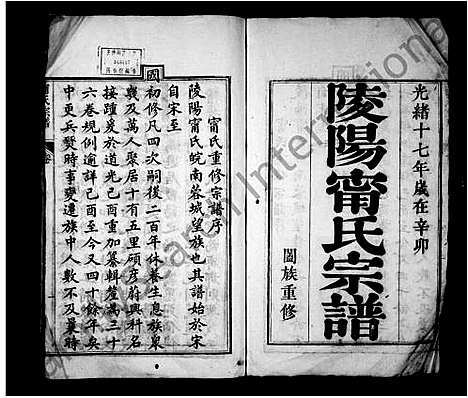 光緒十七年歲在辛卯
陵陽甯氏宗譜
闔族重修
甯氏重修宗譜序
陵陽甯氏皖南蓉城望族也其譜始於宋
自宋至
國
初修凡四次嗣後二百年休養生息族眾
幾及萬人聚居十有五里碩彥蔚興科名
接踵爰於道光己酉重加纂輯釐為三十
六卷規例逾詳己酉至今又四十餘年矣
中更兵燹時事變遷族中人數不及曩時